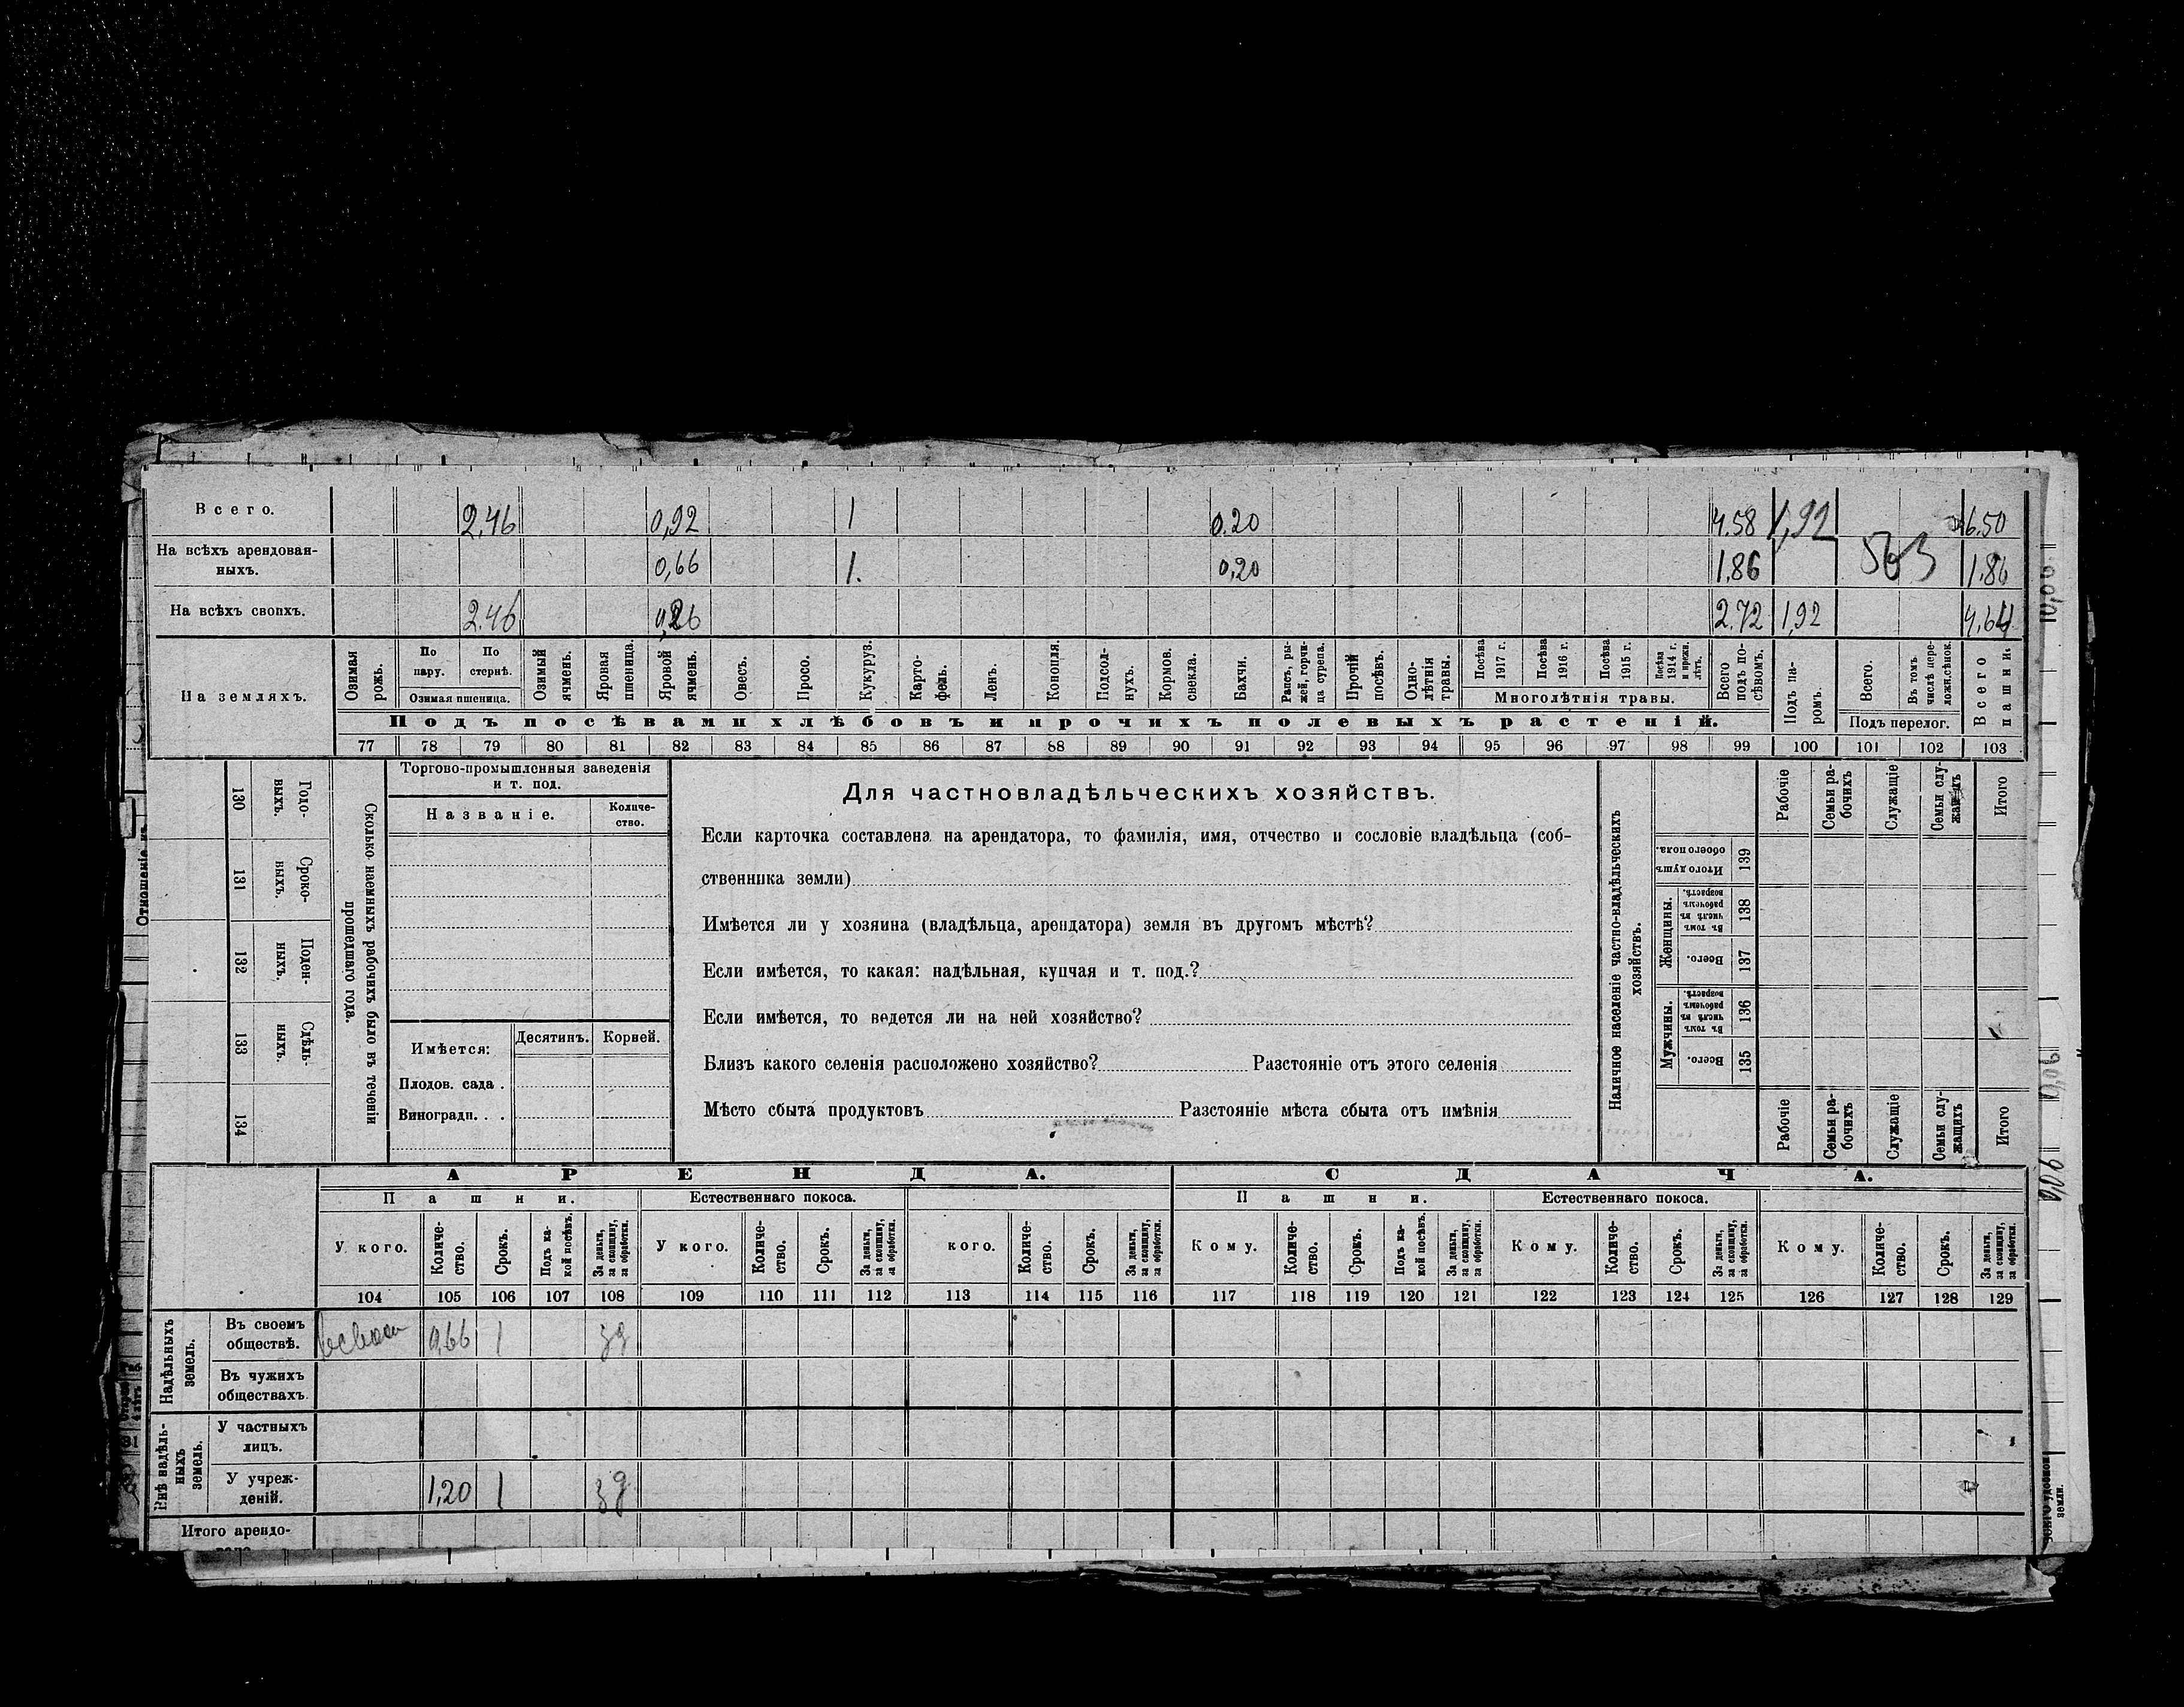 Всего. 2.46 0,92 1 0.20 4.58 1,92 6.50
На всѣхъ арендован-
ныхъ. 0,66 1. 0,20 1.86 563 1.86
На всѣхъ своихъ. 2.46 0,26 2.72 1,92 4,64
На земляхъ.
Озимая рожь.
По пару.
По стернѣ.
Озимая пшеница.
Озимый ячмень.
Яровая пшеница.
Яровой ячмень.
Овесъ.
Просо.
Кукуруз.
Карто-
фель.
Ленъ.
Конопля.
Подсол-
нухъ.
Кормов. свекла.
Бахчи.
Рапсъ, ры-
жей, горчи-
ца сурепа.
Прочій посѣвъ.
Одно-
лѣтнія травы.
Посѣва 1917 г.
Посѣва 1916 г.
Посѣва 1915 г.
Посѣва 1914 г. и прежн. лѣтъ.
Многолѣтнія травы.
Всего подъ по-
сѣвомъ.
Подъ па-
ромъ.
Всего.
Въ томъ числѣ пере-
ложн.сѣнок.
Подъ перелог.
Всего пашни.
Подъ посѣвами хлѣбовъ и прочихъ полевыхъ растеній.
77 78 79 80 81 82 83 84 85 86 87 88 89 90 91 92 93 94 95 96 97 98 99 100 101 102 103
Отношеніе къ
130 Годо-
выхъ.
131 Сроко-
ныхъ.
132 Поден-
ныхъ.
133 Сдѣль-
ныхъ.
134
Сколько наемныхъ рабочихъ было въ теченіи
прошедшаго года.
Торгово-промышленныя заведенія
и т. под.
Названіе.
Количе-
ство.
Имѣется: Десятинъ. Корней.
Плодов. сада .
Виноградн. . .
Для частновладѣльческихъ хозяйствъ.
Если карточка составлена на арендатора, то фамилія, имя, отчество и сословіе владѣльца (соб-
ственника земли)
Имѣется ли у хозяина (владѣльца, арендатора) земля въ другомъ мѣстѣ?
Если имѣется, то какая: надѣльная, купчая и т. под.?
Если имѣется, то ведется ли на ней хозяйство?
Близъ какого селенія расположено хозяйство? Разстояніе отъ этого селенія
Мѣсто сбыта продуктовъ Разстояніе мѣста сбыта отъ имѣнія
Наличное населеніе частно-владѣльческихъ
хозяйствъ.
Рабочіе
Семьи ра-
бочихъ
Служащіе
Семьи слу-
жащихъ
Итого
Итого душъ обоего пола. 139
Женщины.
Въ томъ числѣ въ рабочемъ возрастѣ. 138
Всего. 137
Мужчины.
Въ томъ числѣ въ рабочемъ возрастѣ. 136
Всего. 135
Рабочіе
Семьи ра-
бочихъ
Служащіе
Семьи слу-
жащихъ
Итого
АРЕНДА. СДАЧА.
Пашни. Естественнаго покоса. Пашни. Естественнаго покоса.
У кого.
Количе-
ство.
Срокъ.
Подъ ка-
кой посѣвъ.
За деньги,
за скопщину,
за обработки.
У кого.
Количе-
ство.
Срокъ.
За деньги,
за скопщину,
за обработки.
кого.
Количе-
ство.
Срокъ.
За деньги,
за скопщину,
за обработки.
Кому.
Количе-
ство.
Срокъ.
Подъ ка-
кой посѣвъ.
За деньги,
за скопщину,
за обработки.
Кому.
Количе-
ство.
Срокъ.
За деньги,
за скопщину,
за обработки.
Кому.
Количе-
ство.
Срокъ.
За деньги,
за скопщину,
за обработки.
104 105 106 107 108 109 110 111 112 113 114 115 116 117 118 119 120 121 122 123 124 125 126 127 128 129
Надѣльныхъ
земель.
Въ своемъ
обществѣ. 0,66 1 зд
Въ чужихъ
обществахъ.
Внѣ надѣль-
ныхъ
земель.
У частныхъ
лицъ.
У учреж-
деній. 1,20 1 зд
Итого арендо-